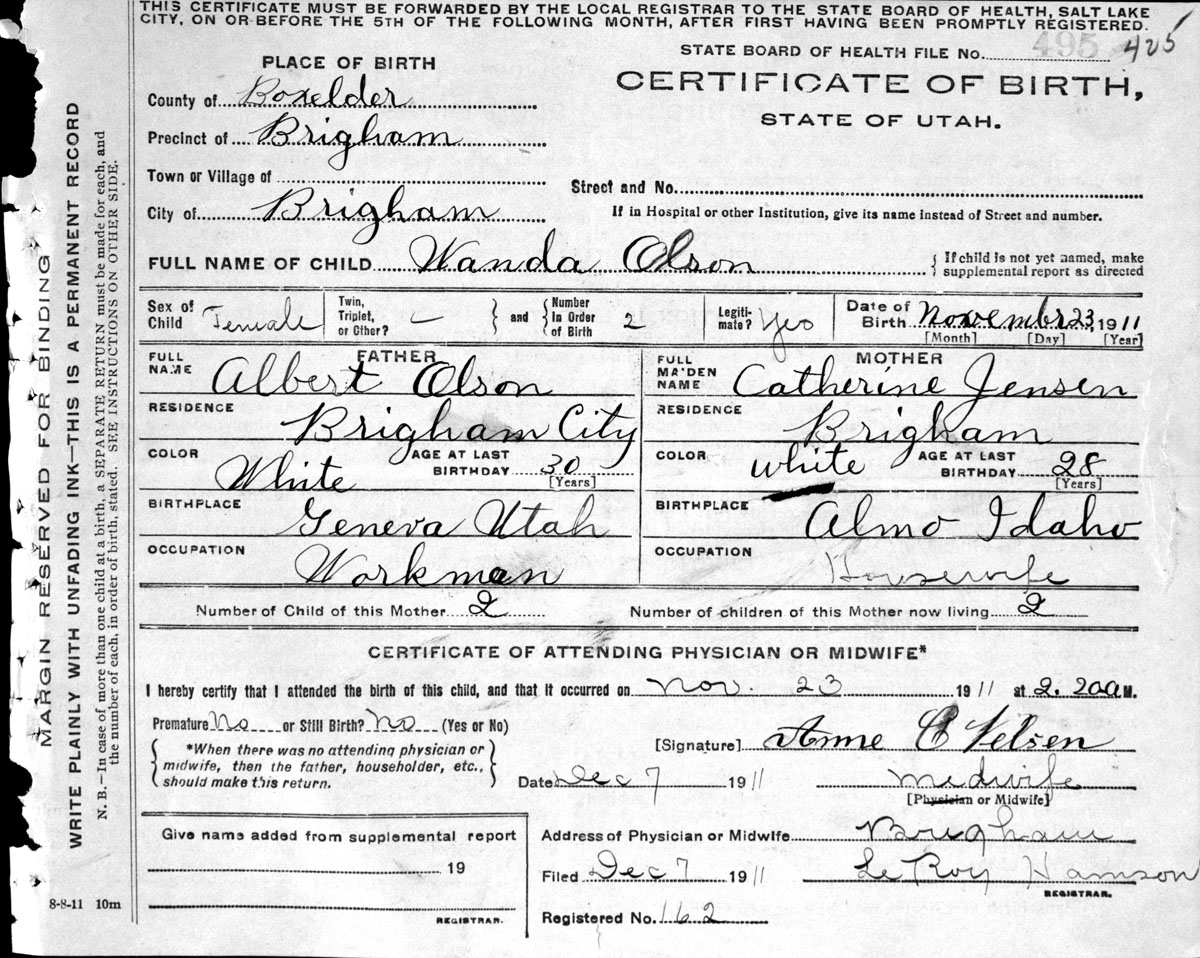 THIS CERTIFICATE MUST BE FORWARDED BY THE LOCAL REGISTRAR TO THE STATE BOARD OF HEALTH, SALT LAKE
CITY, ON OR BEFORE THE 5TH OF THE FOLLOWING MONTH, AFTER FIRST HAVING BEEN PROMPTLY REGISTERED.
STATE BOARD OF HEALTH FILE No. 495 425
PLACE OF BIRTH
CERTIFICATE OF BIRTH,
STATE OF UTAH.
County of Boxelder
Precinct of Brigham
Town or Village of
Street and No.
City of Brigham
If in Hospital or other Institution, give its name instead of Street and number.
FULL NAME OF CHILD Wanda Olson { If child is not yet named, make
supplemental report as directed
Sex of Child Female
Twin, Triplet, or Other? —
and
Number In Order of Birth 2
Legiti-mate? Yes
Date of Birth November 23 1911
[Month] [Day] [Year]
FATHER
FULL NAME Albert Olson
RESIDENCE Brigham City
COLOR White AGE AT LAST BIRTHDAY 30 [Years]
BIRTHPLACE Geneva Utah
OCCUPATION Workman
MOTHER
FULL MAIDEN NAME Catherine Jensen
RESIDENCE Brigham
COLOR white AGE AT LAST BIRTHDAY 28 [Years]
BIRTHPLACE Almo Idaho
OCCUPATION Housewife
Number of Child of this Mother 2 Number of children of this Mother now living 2
CERTIFICATE OF ATTENDING PHYSICIAN OR MIDWIFE*
I hereby certify that I attended the birth of this child, and that it occurred on Nov. 23 1911 at 2.20 a M.
Premature No or Still Birth? No (Yes or No)
*When there was no attending physician or
midwife, then the father, householder, etc.,
should make this return.
[Signature] Anne C Nelsen
Date Dec 7 1911 Midwife
[Physician or Midwife]
Give name added from supplemental report
19
REGISTRAR.
Address of Physician or Midwife Brigham
Filed Dec 7 1911 Le Roy Hamson
REGISTRAR.
Registered No. 162
8-8-11 10m
MARGIN RESERVED FOR BINDING
WRITE PLAINLY WITH UNFADING INK—THIS IS A PERMANENT RECORD
N. B.—In case of more than one child at a birth, a SEPARATE RETURN must be made for each, and
the number of each, in order of birth, stated. SEE INSTRUCTIONS ON OTHER SIDE.